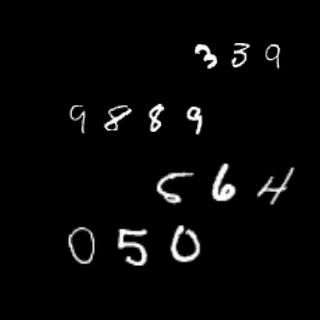 339
9889
564
050